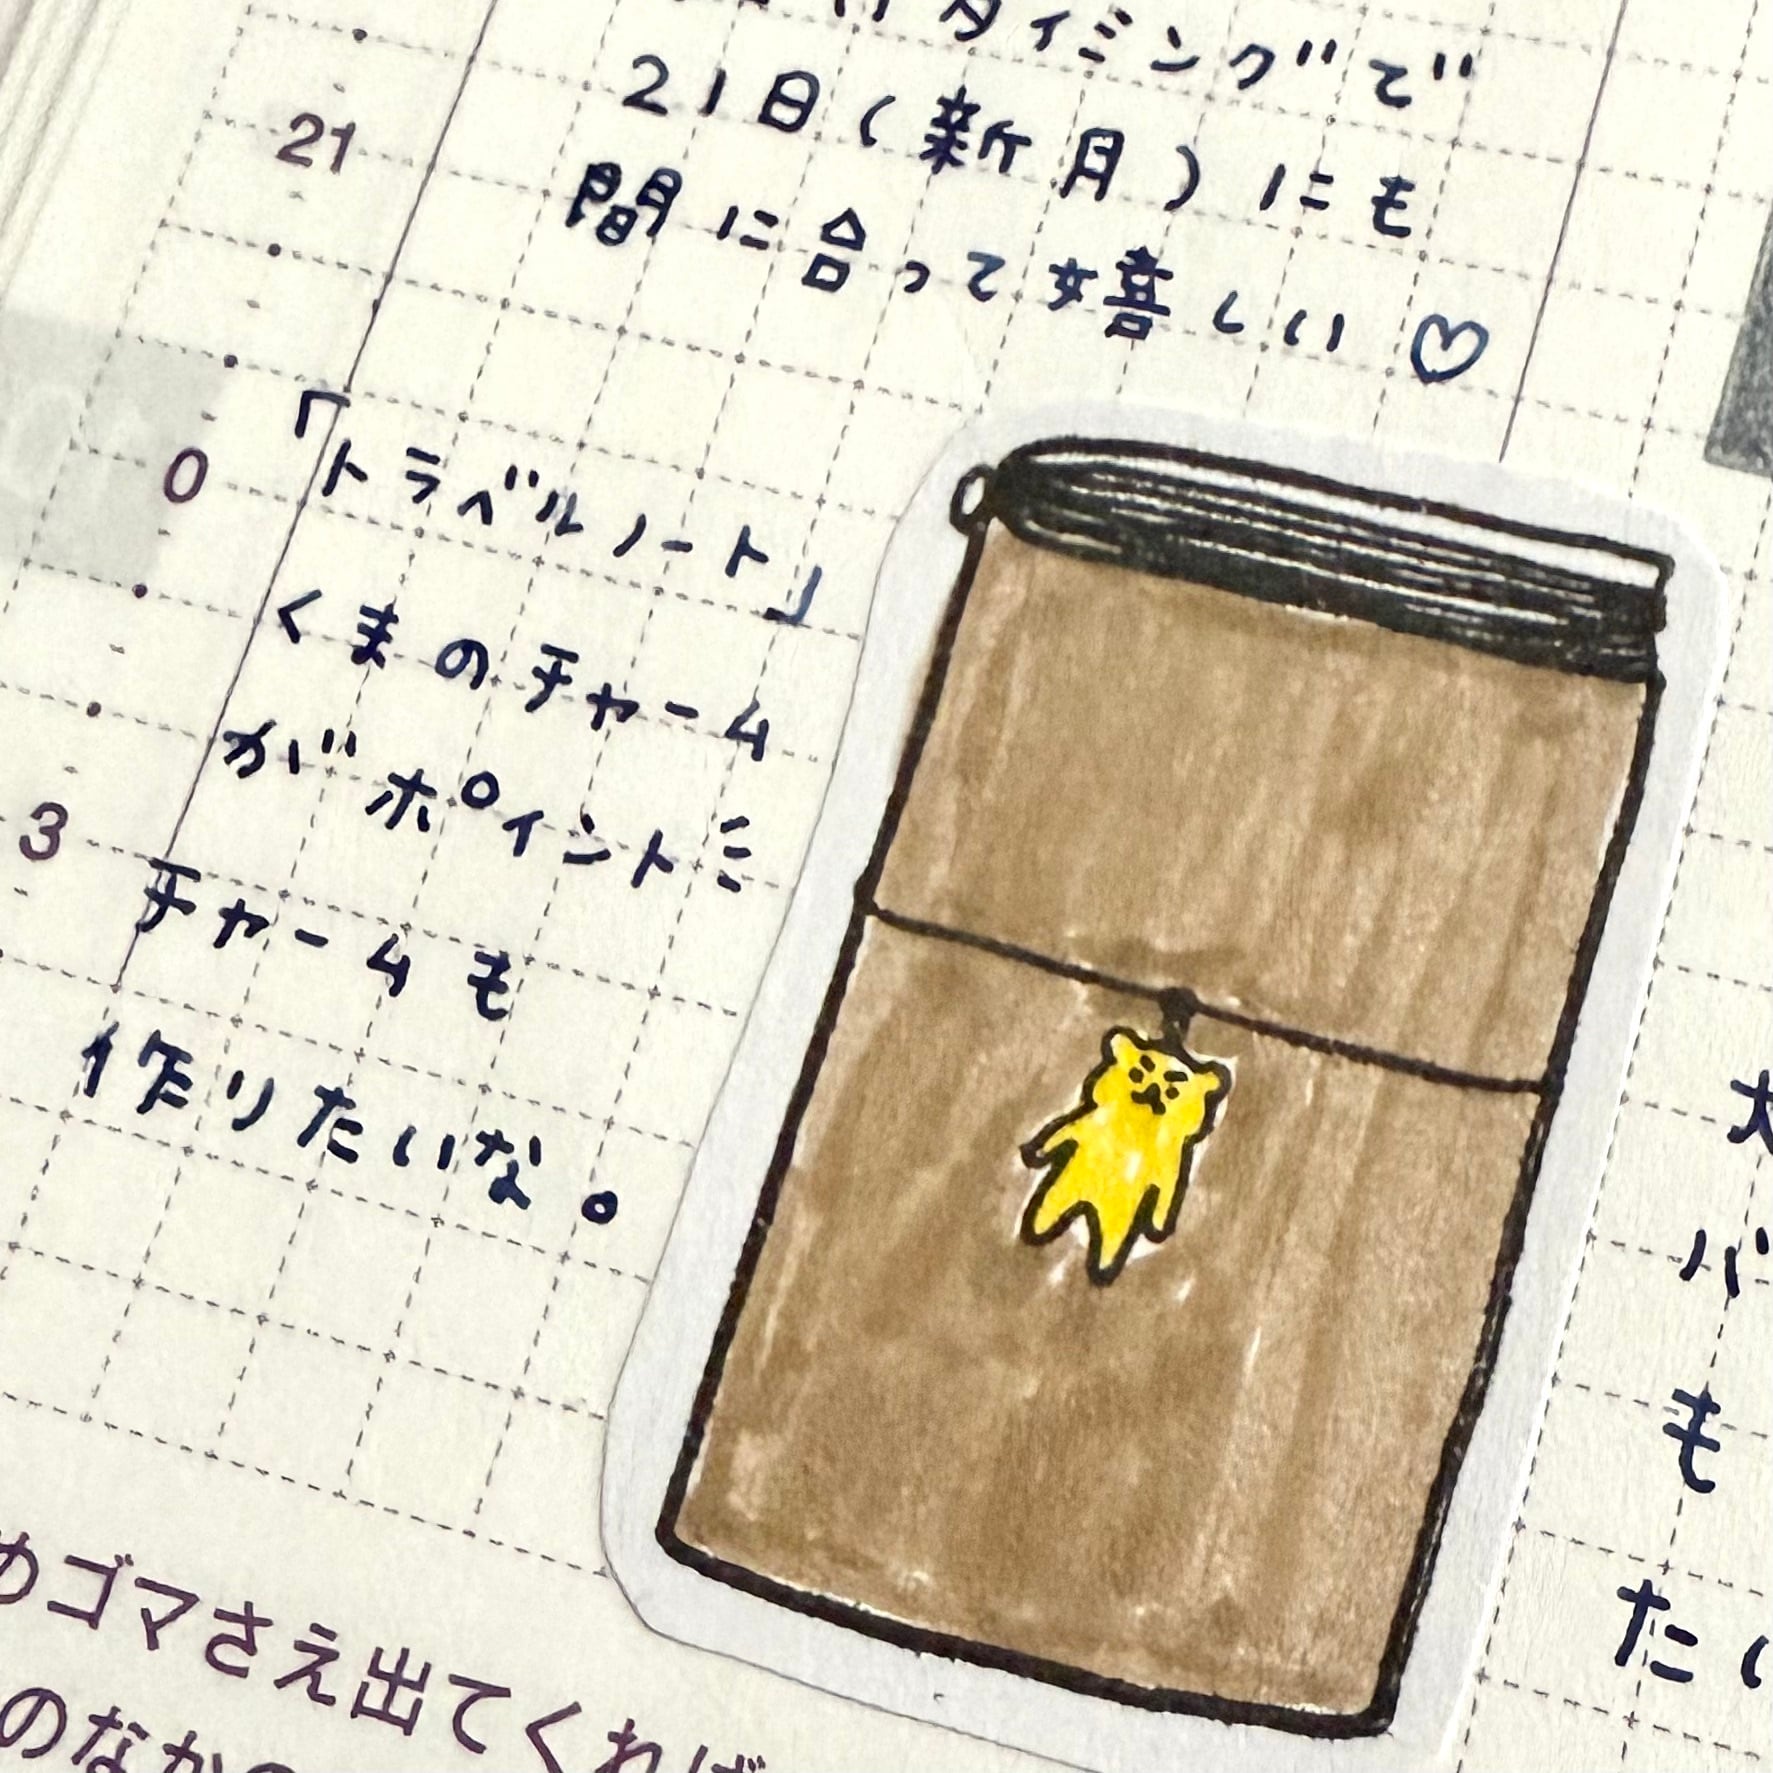 タイミングで
21日(新月)にも
21
間に合って嬉しい♡
「トラベルノート」
0
くまのチャーム
がポイント
3
チャームも
作りたいな。
も
ゴマさえ出てくれば
のなかの